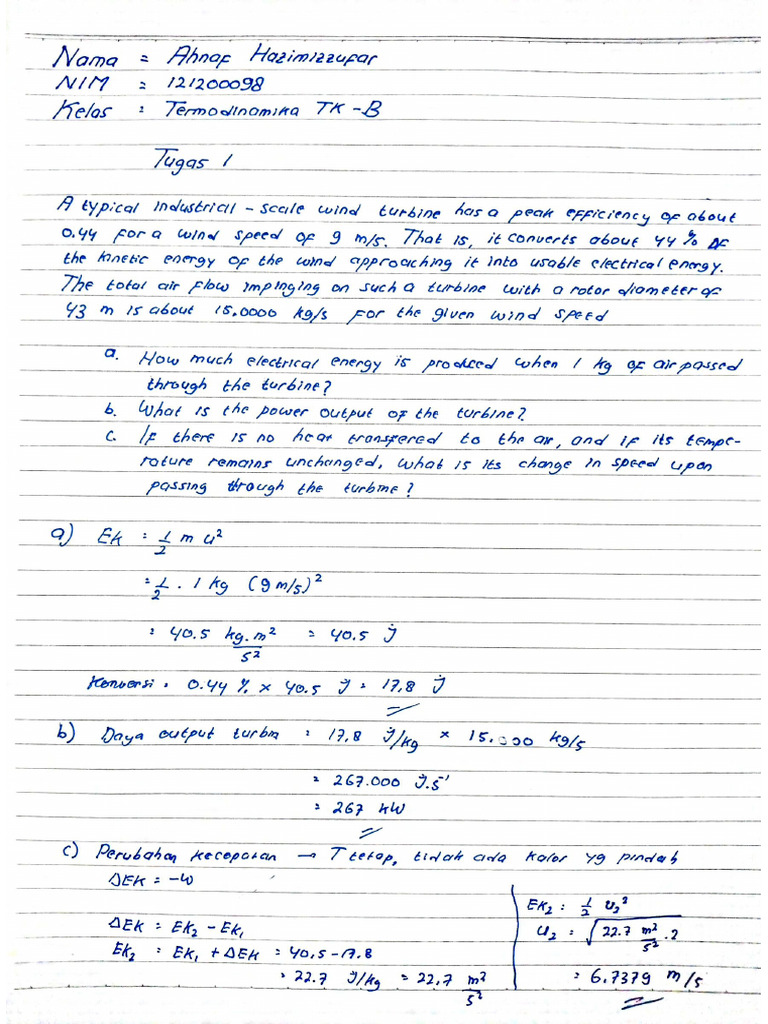 Nama = Ahnaf Hazimizzufar
NIM = 121200098
Kelas : Termodinamika TK-B
Tugas 1
A typical industrial-scale wind turbine has a peak efficiency of about
0.44 for a wind speed of 9 m/s. That is, it converts about 44% of
the kinetic energy of the wind approaching it into usable electrical energy.
The total air flow impinging on such a turbine with a rotor diameter of
43 m is about 15.0000 kg/s for the given wind speed
a. How much electrical energy is produced when 1 kg of air passed
through the turbine?
b. What is the power output of the turbine?
c. If there is no heat transfered to the air, and if its tempe-
rature remains unchanged, what is its change in speed upon
passing through the turbine?
a) Ek : 1/2 m u²
= 1/2 . 1 kg (9 m/s)²
= 40.5 kg.m²/s² = 40.5 J
Konversi = 0.44 % × 40.5 J = 17,8 J
b) Daya output turbin = 17,8 J/kg × 15.000 kg/s
= 267.000 J.s⁻¹
= 267 kW
c) Perubahan kecepatan → T tetap, tidak ada kalor yg pindah
ΔEK = -W
ΔEK = EK₂ - EK₁
EK₂ = EK₁ + ΔEK = 40,5 - 17.8
= 22.7 J/kg = 22,7 m²/s²
EK₂ = 1/2 u₂²
u₂ = √22.7 m²/s² .2
= 6.7379 m/s